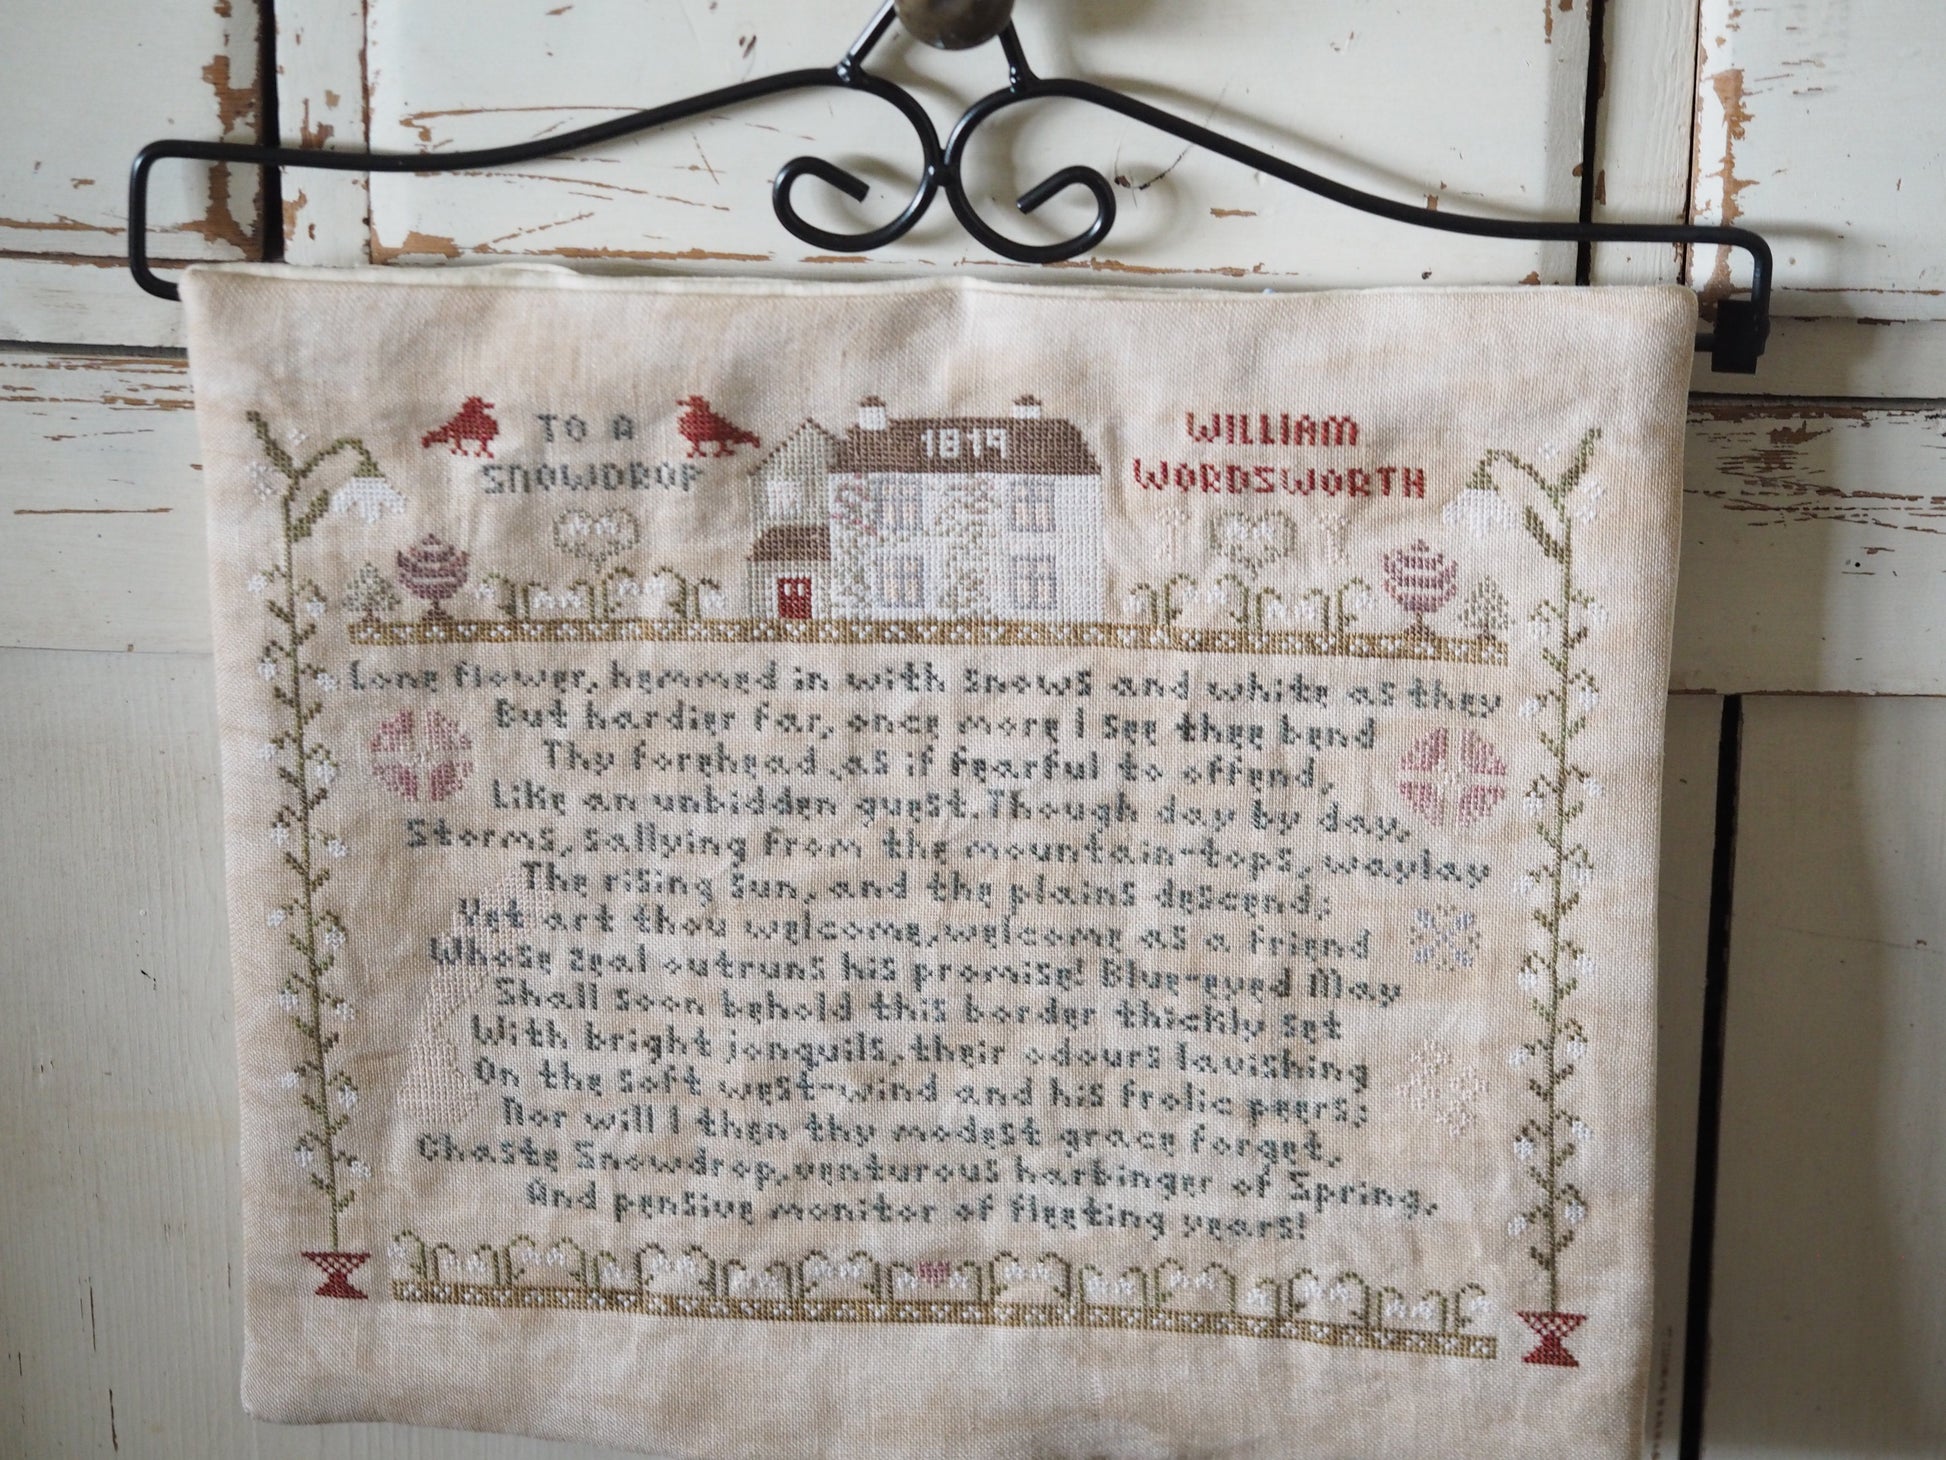 TO A
SNOWDROP
1819
WILLIAM
WORDSWORTH
Lone flower, hemmed in with snows and white as they
But hardier far, once more I see thee bend
Thy forehead, as if fearful to offend,
Like an unbidden guest. Though day by day,
Storms, sallying from the mountain-tops, waylay
The rising sun, and the plains descend;
Yet art thou welcome, welcome as a friend
Whose zeal outruns his promise! Blue-eyed May
Shall soon behold this border thickly set
With bright jonquils, their odours lavishing
On the soft west-wind and his frolic peers;
Nor will I then thy modest grace forget,
Chaste Snowdrop, venturous harbinger of Spring,
And pensive monitor of fleeting years!